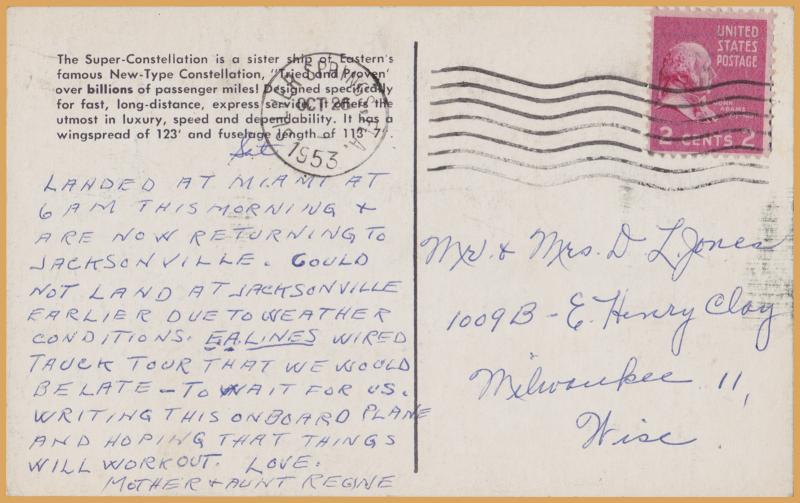 The Super-Constellation is a sister ship of Eastern's
famous New-Type Constellation, "Tried and Proven"
over billions of passenger miles! Designed specifically
for fast, long-distance, express service. It offers the
utmost in luxury, speed and dependability. It has a
wingspread of 123' and fuselage length of 113' 7".
Sat
LANDED AT MIAMI AT
6 AM THIS MORNING +
ARE NOW RETURNING TO
JACKSONVILLE. COULD
NOT LAND AT JACKSONVILLE
EARLIER DUE TO WEATHER
CONDITIONS. E.A. LINES WIRED
TAUCK TOUR THAT WE WOULD
BE LATE - TO WAIT FOR US.
WRITING THIS ONBOARD PLANE
AND HOPING THAT THINGS
WILL WORKOUT. LOVE.
MOTHER + AUNT REGINE
SPRINGS, GA.
OCT 26
1953
UNITED
STATES
POSTAGE
JOHN
ADAMS
2 CENTS 2
Mr. + Mrs. D L. Jones
1009B - E. Henry Clay
Milwaukee 11,
Wisc